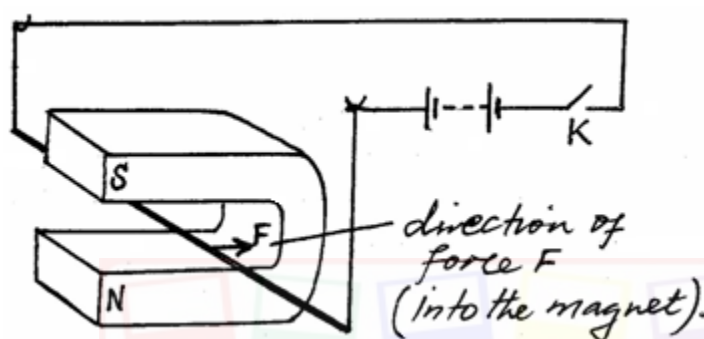 K
S
F
direction of
force F
(into the magnet).
N